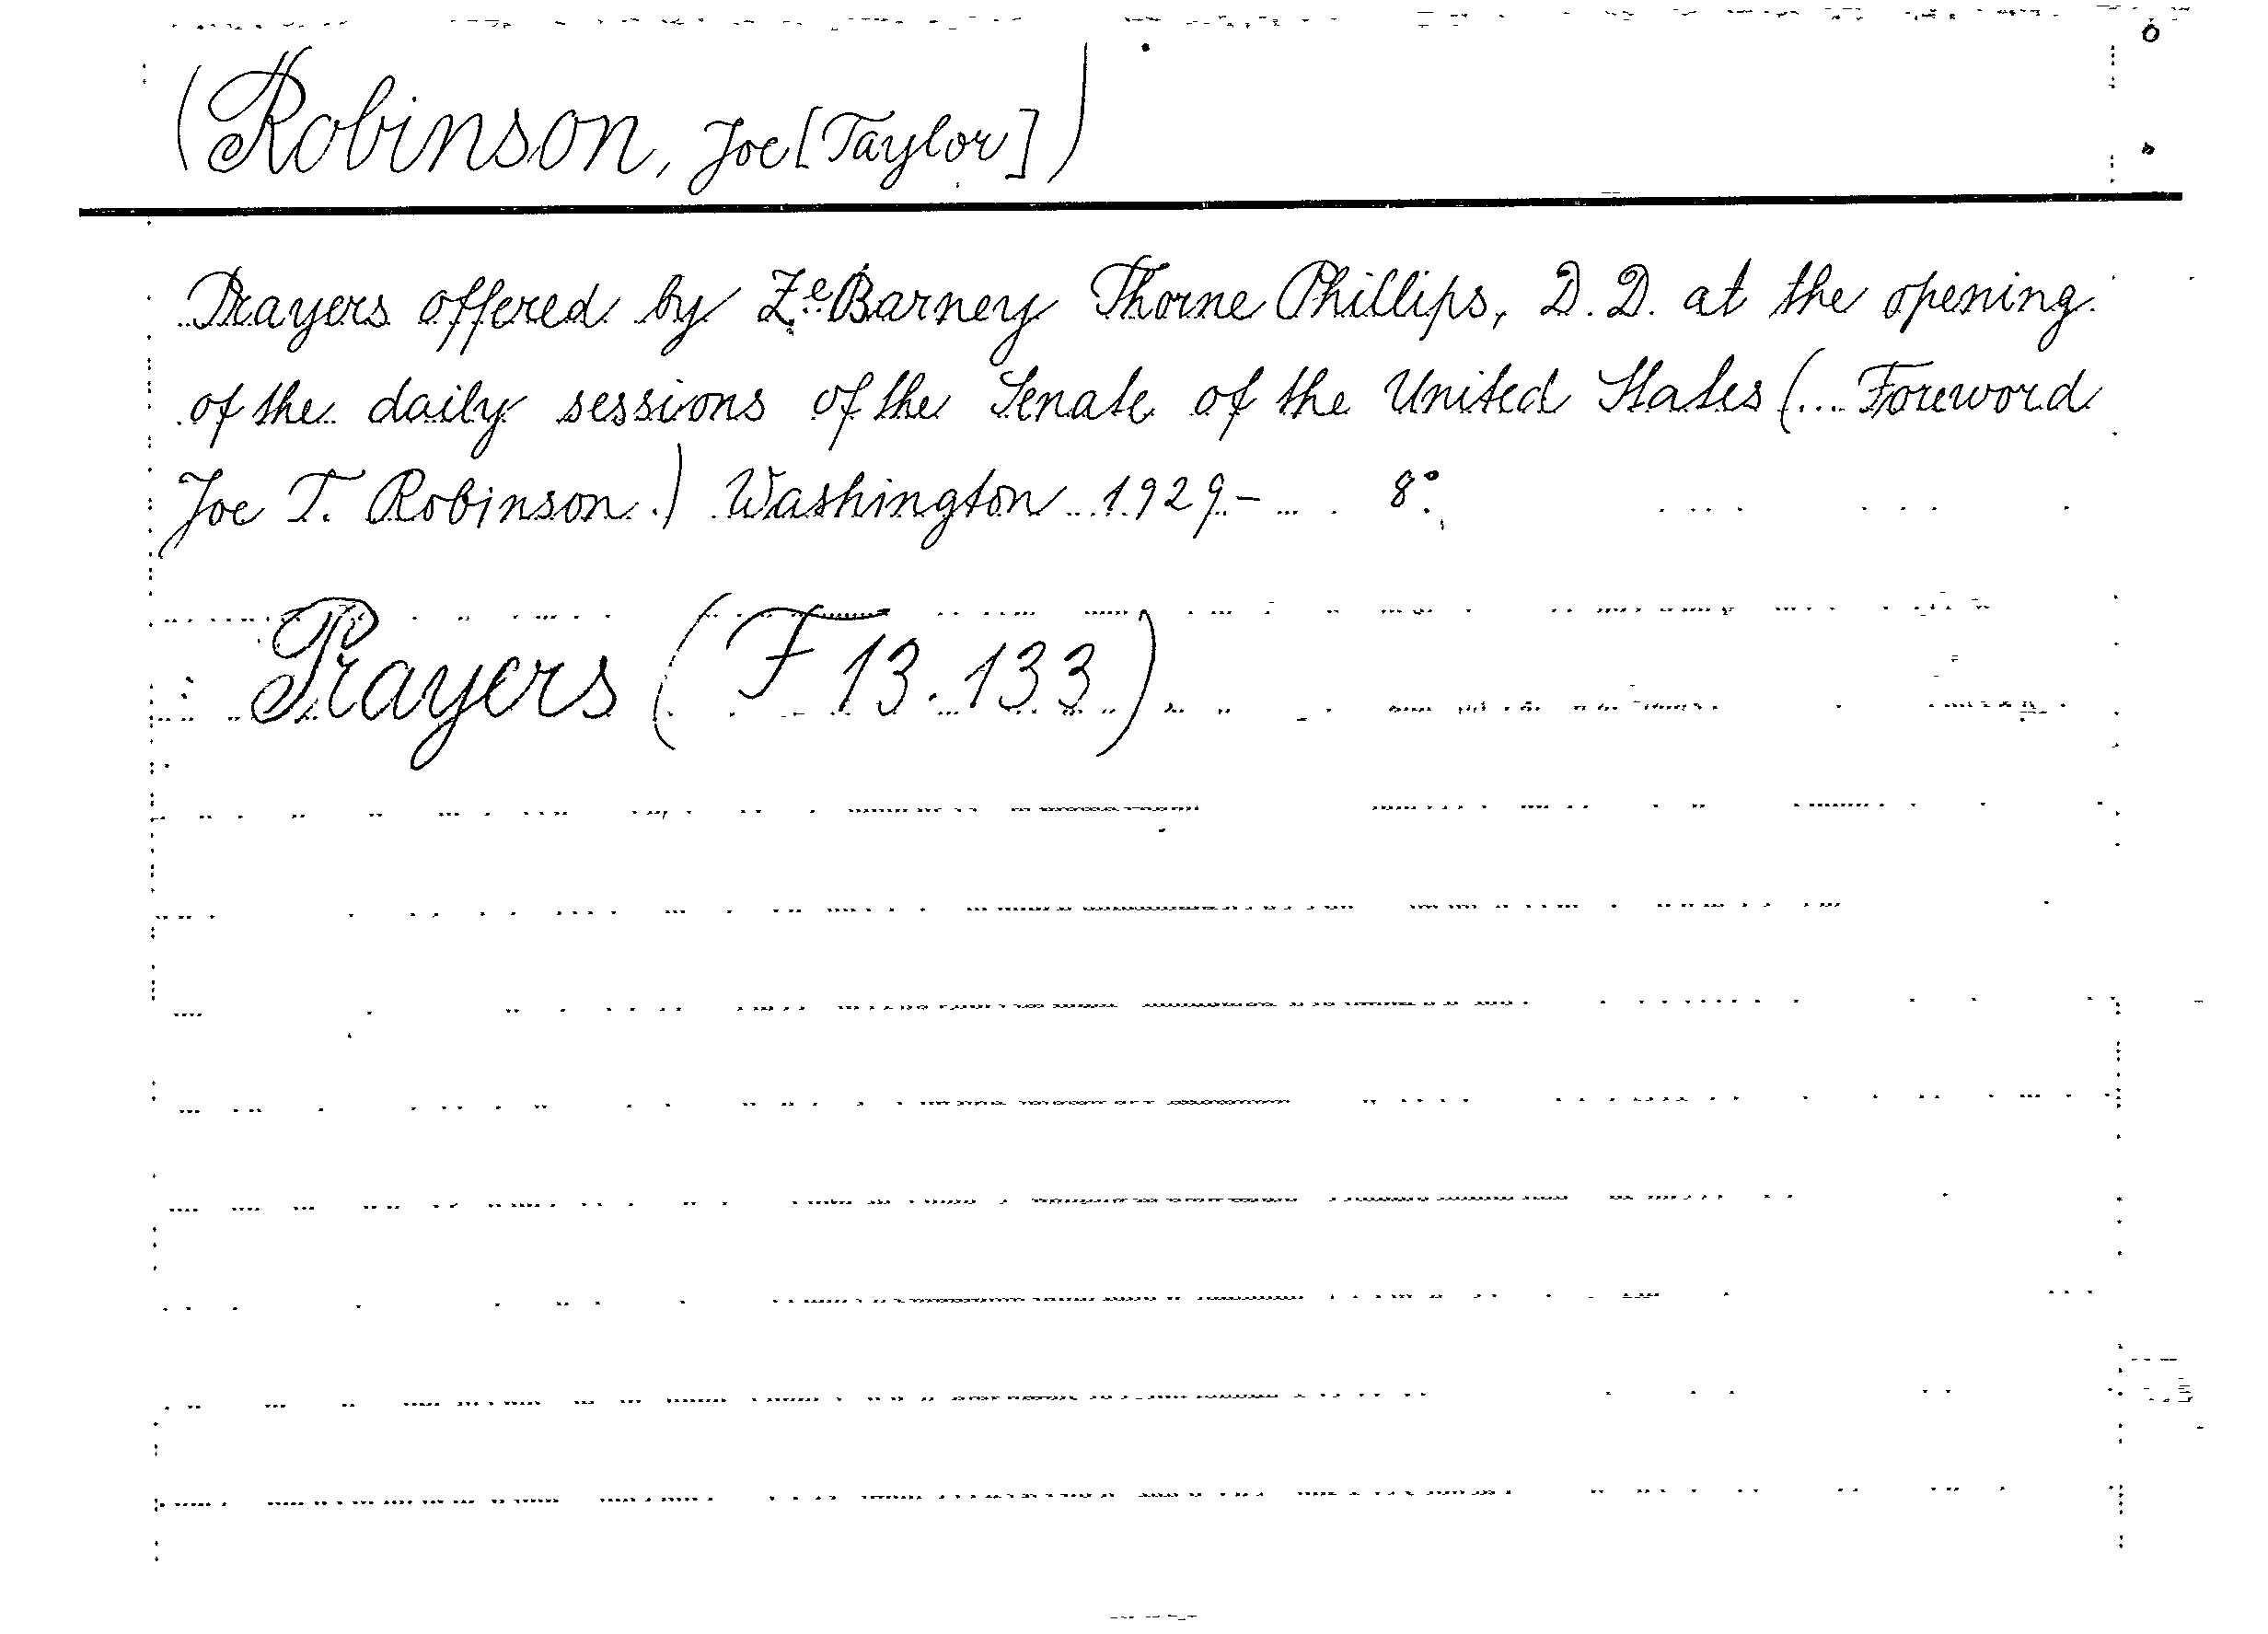 (Robinson, Joe [Taylor])
Prayers offered by ZeBarney Thorne Phillips, D. D. at the opening
of the daily sessions of the Senate of the United States (... Foreword
Joe T. Robinson.) Washington 1929- 8°.
Prayers (F 13.133)